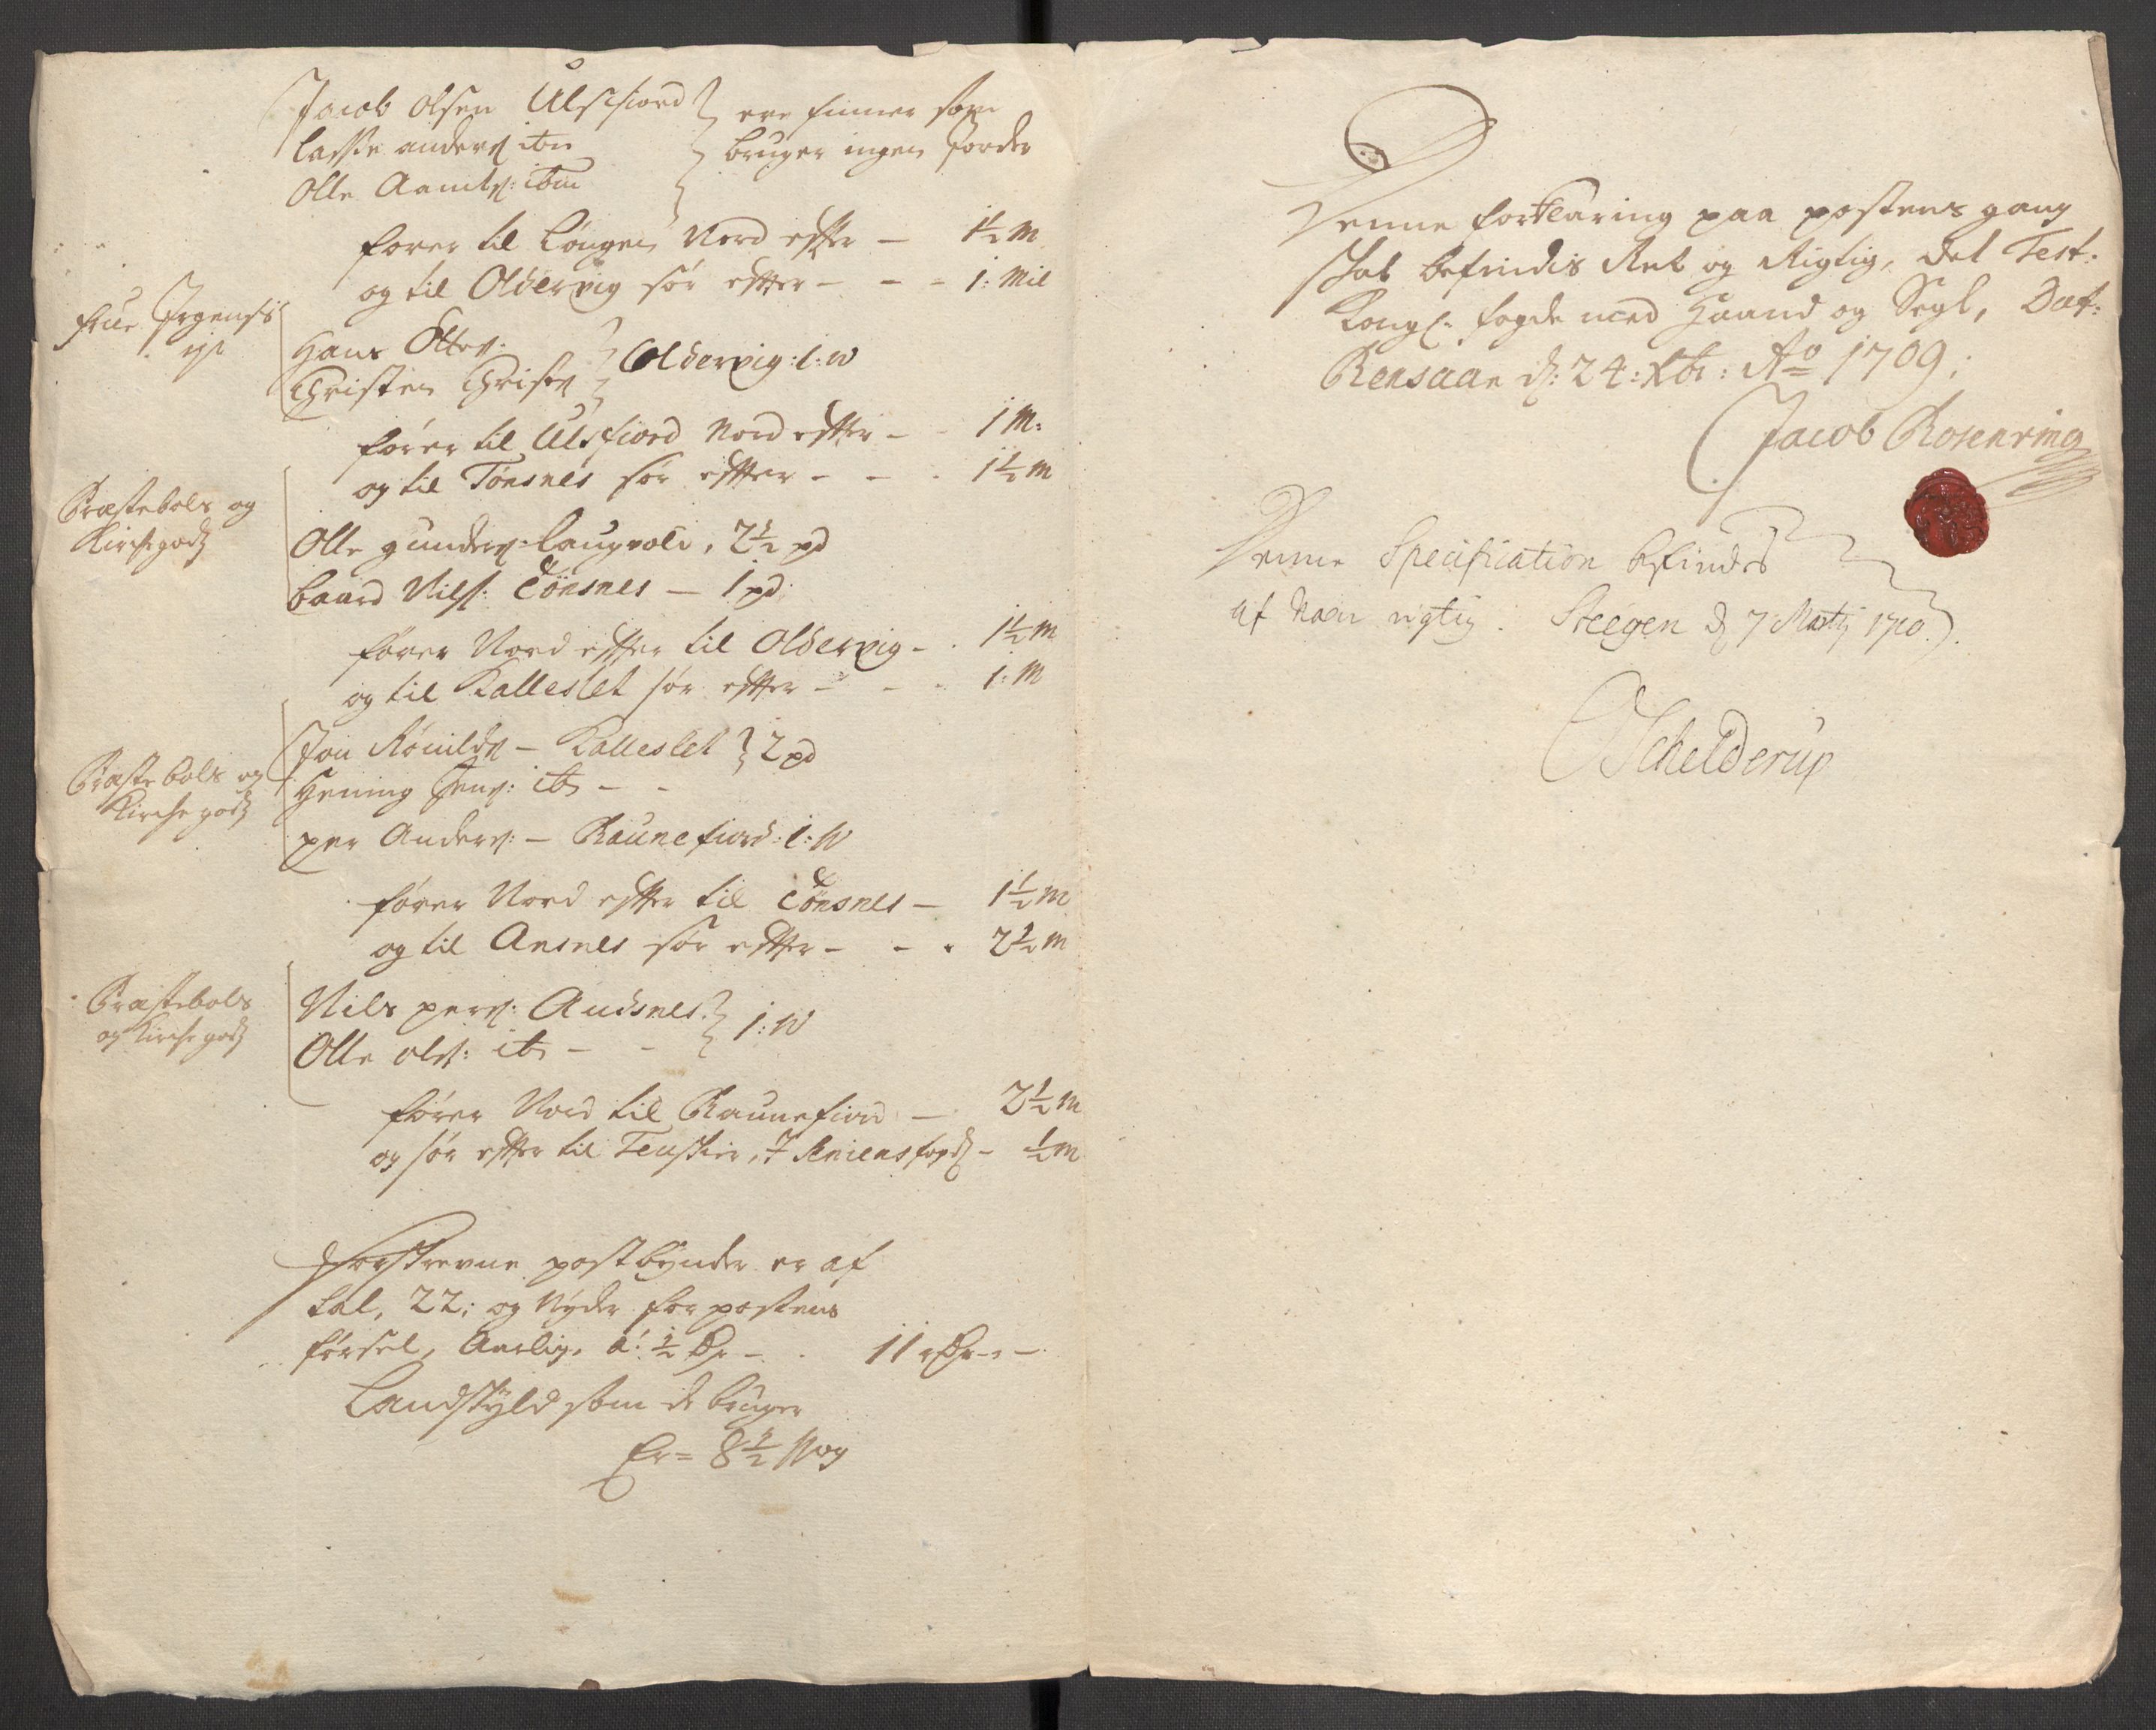 Jacob Olsen Ulsfiord } ere finner som
Lasse anders: ibm } bruger ingen Jorder
Olle Aamts: ibm
fører til Løngen Nord effter — 1½ M
og til Oldervig sør effter — 1: Mil
frue Irgenses
Hans Otters:
Christen Christ: } Oldervig: 1: w
fører til Ulsfiord Nord effter — 1 M:
og til Tønsnes sør effter — 1½ M
Præstebols og
Kirche godz
Olle gunders: Laugvold, 2½ pd
Baard Nils: Tønsnes — 1 pd:
fører Nord effter til Oldervig — 1½ M
og til Kalleslet sør effter — 1: M
Præstebols og
Kirche godz
Jon — Kalleslet } 2 pd
Hening Jens: ib — -
per Anders: — Raunefiord: 1: W
fører Nord effter til Tønsnes — 1½ M
og til Ansnes sør effter — 2½ M
Præstebols
og Kirche godz
Nils pers: Andsnes } 1: W
Olle ols: ib — -
fører Nord til Raunefiord — 2½ M
og sør effter til I Seniens fogd: — ½ M
Forskrevne postbønder er af
tal, 22; og Nyder for postens
førsel, Aarlig, á: ½ Dr — 11 rDr — —
Landskyld som de bruger
Er = 8½ Wog
Denne forklaring paa postens gang
skal befindis Ret og Rigtig, det Test:
Kongl: fogde med Haand og Segl, Dat:
Rensaae d: 24: Xbr: Ao 1709;
Jacob Rosenving
Denne Specification befindes
af Mær rigtig. Steegen d 7 Martij 1710.
OSchelderup